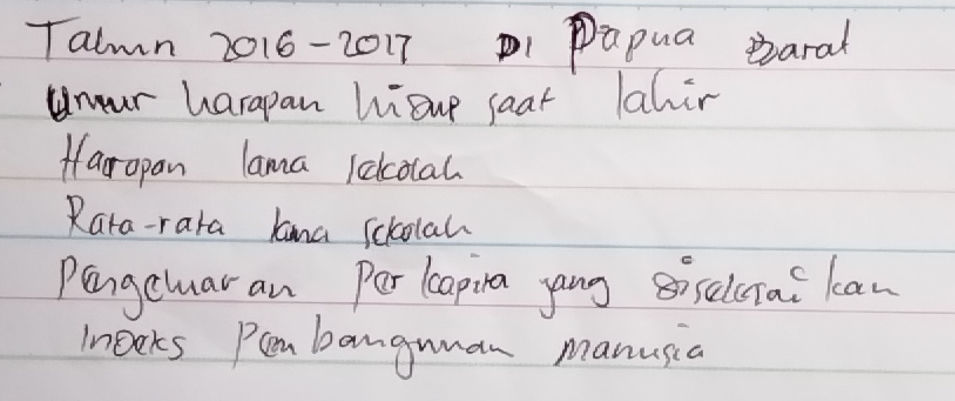 Tahun 2016-2017 Di Papua Barat
Umur harapan hidup saat lahir
Harapan lama sekolah
Rata-rata lama sekolah
Pengeluaran Per kapita yang diselesaikan
Indeks Pembangunan manusia